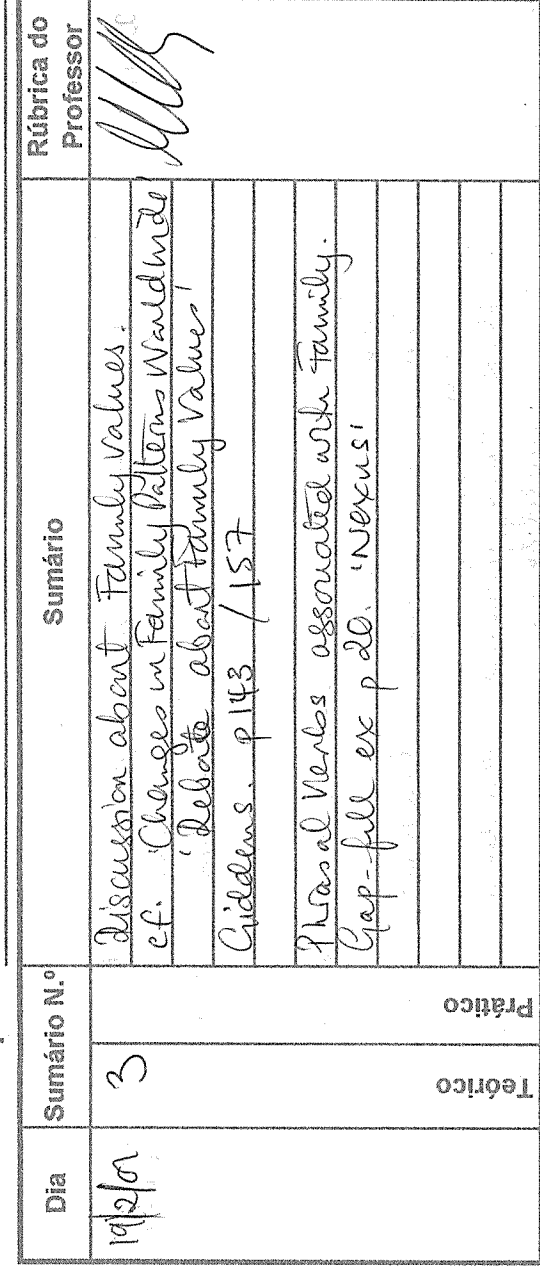 Dia
Sumário N.º
Sumário
Rúbrica do
Professor
19/2/01
3
Teórico
Prático
Discussion about Family values.
cf. 'Changes in Family Patterns Worldwide'
'Debate about Family Values'
Giddens. p143 /157
Phrasal Verbs associated with Family.
Gap-fill ex p 20. 'Nexus'